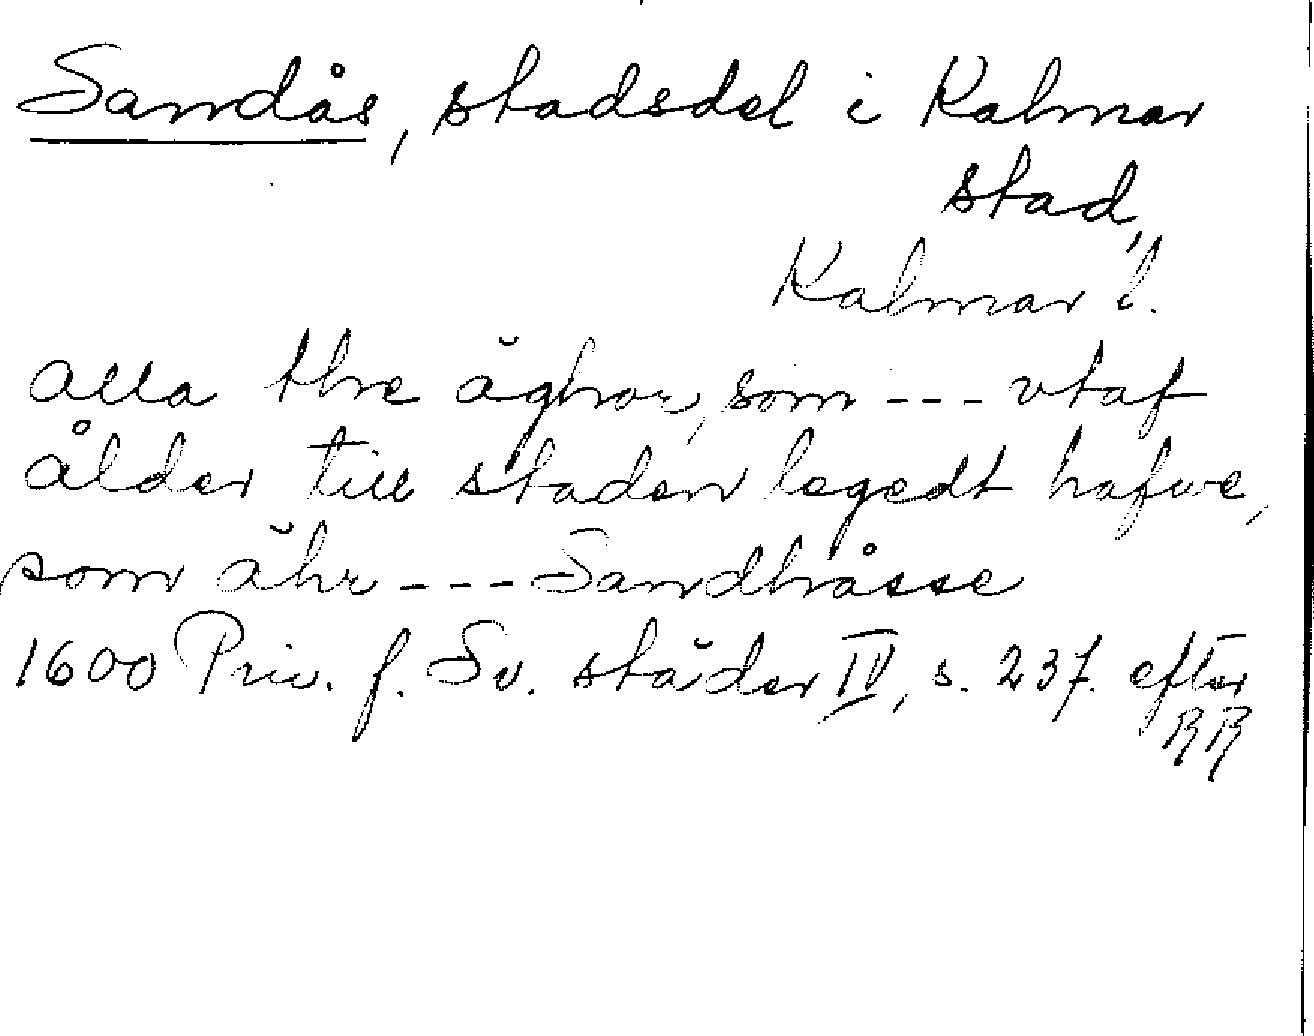 Sandås, stadsdel i Kalmar
stad,
Kalmar l.
alla the äghor, som --- vtaf
ålder till staden legedt hafwe,
som ähr --- Sandhåsse
1600 Priv. f. Sv. städer IV, s. 237. efter
RR